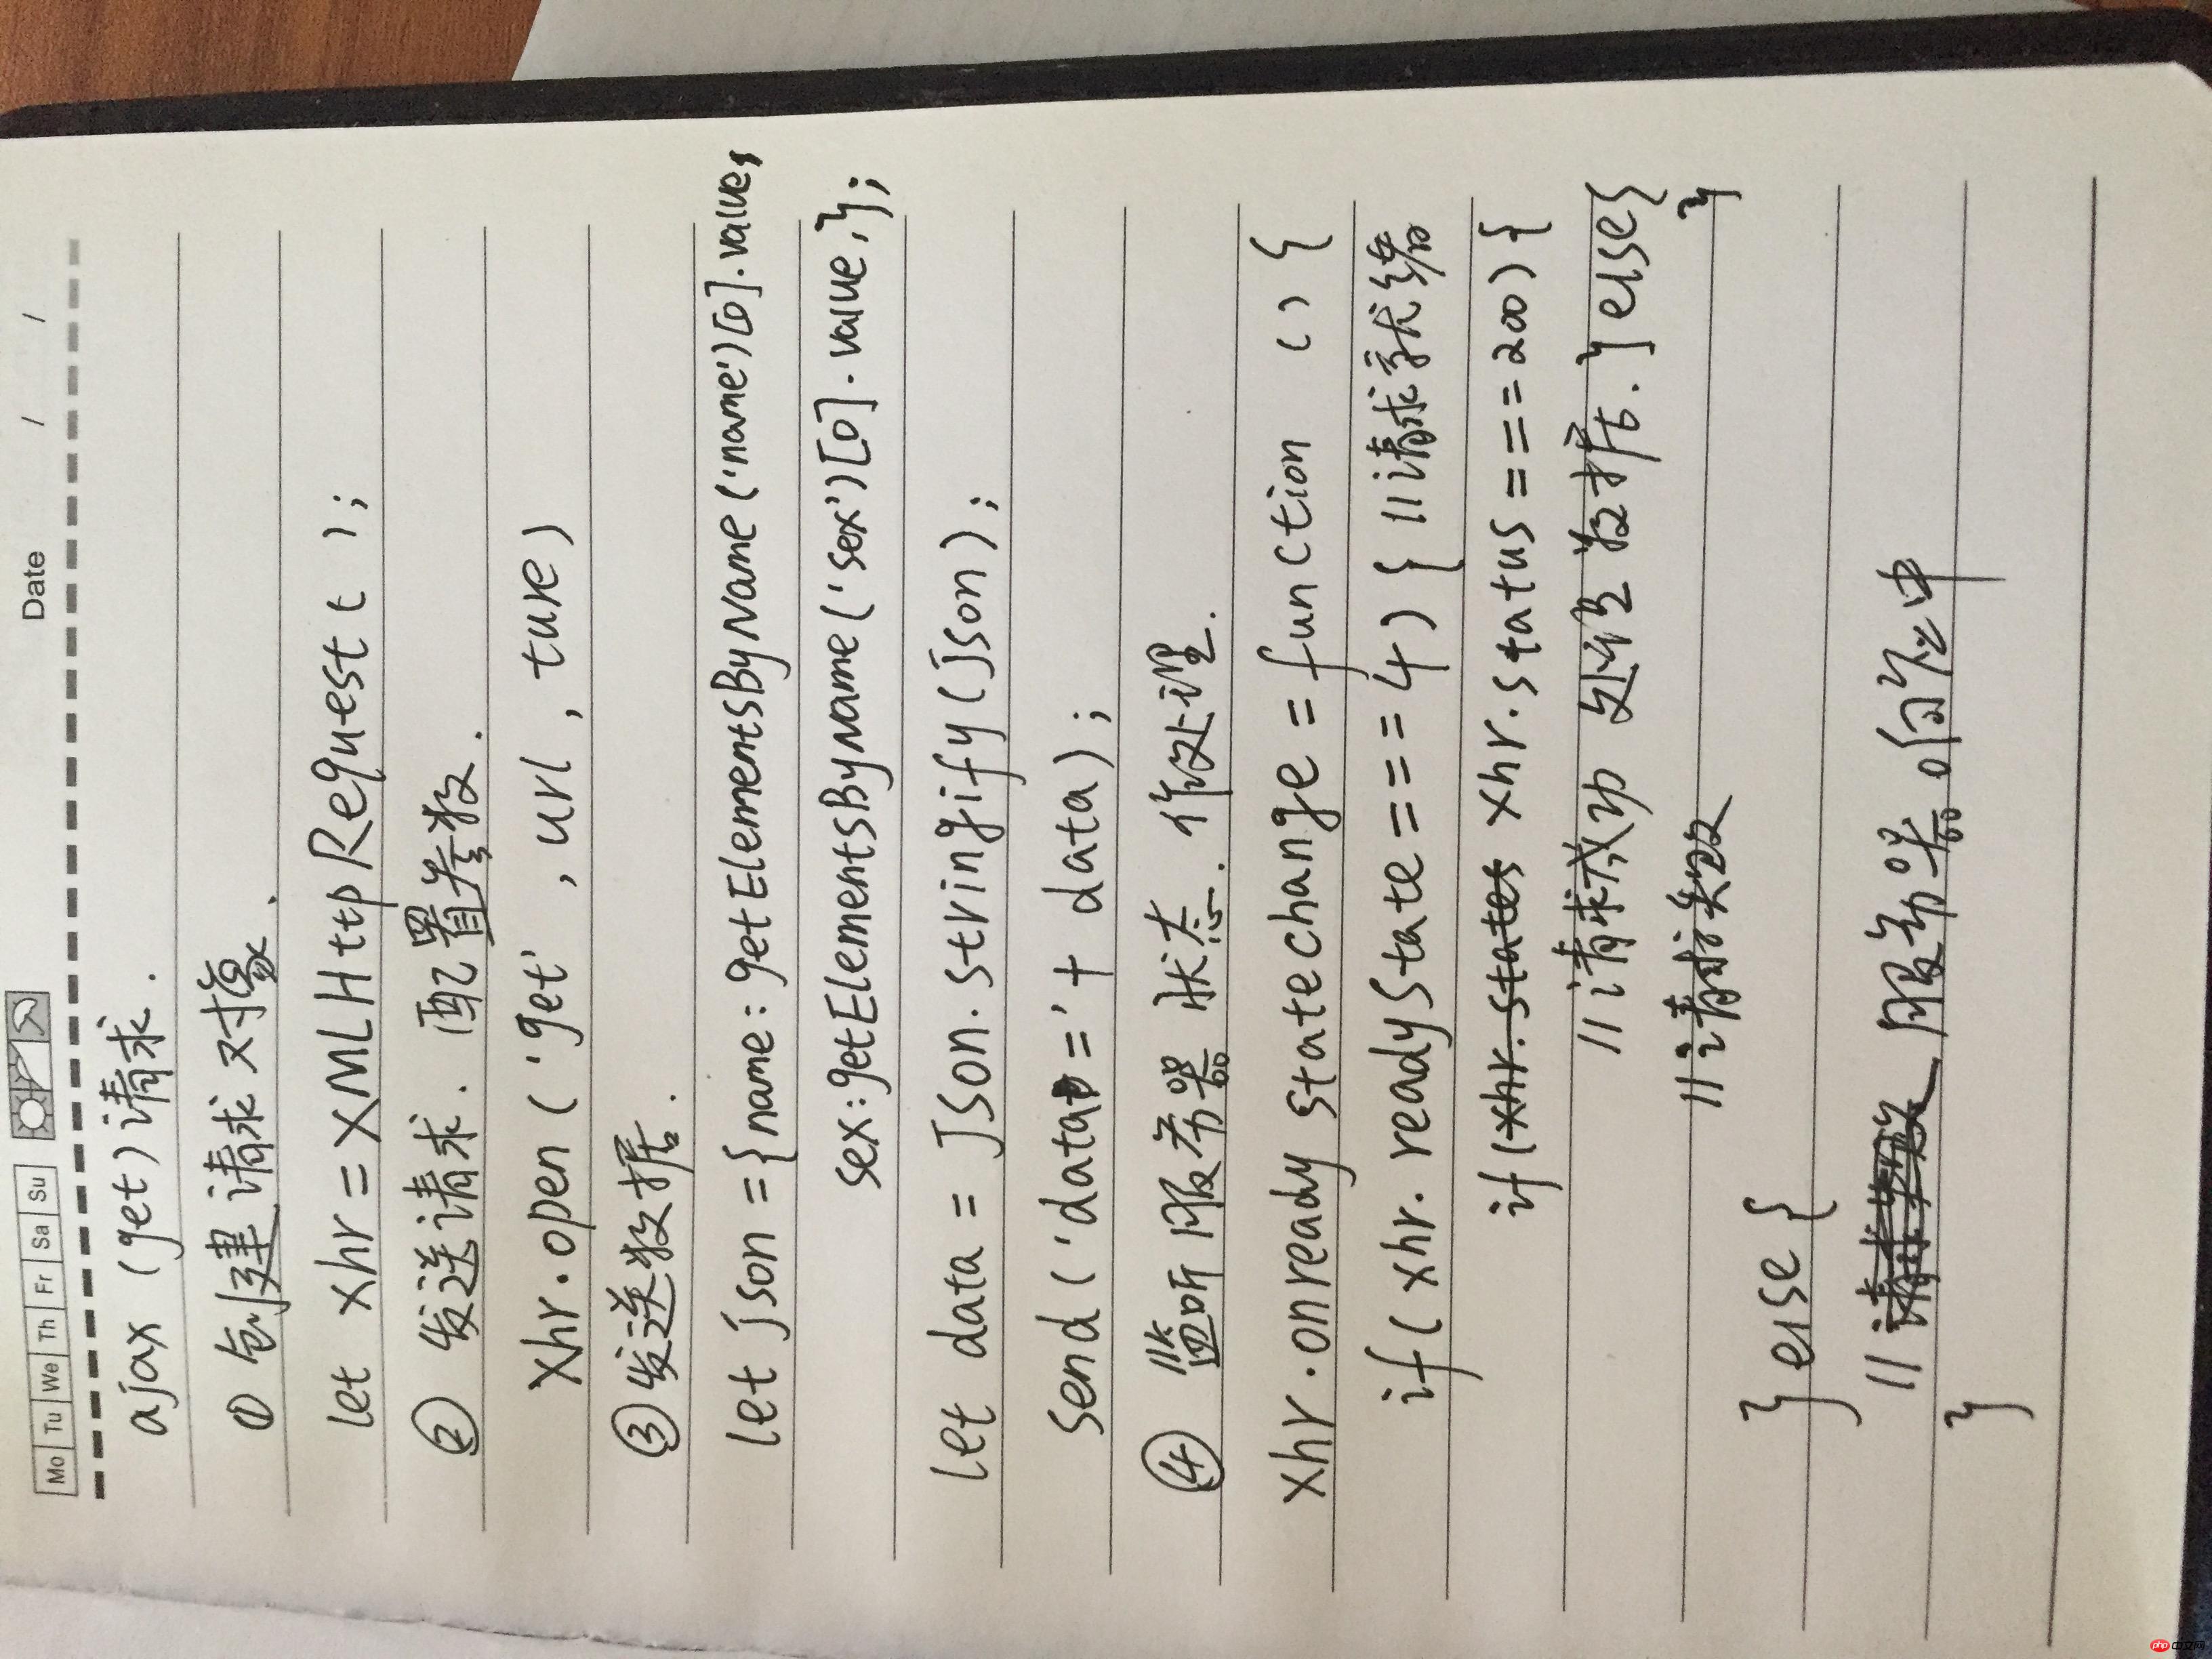 Mo Tu We Th Fr Sa Su
Date / /
ajax (get) 请求.
① 创建请求对象.
let xhr = XMLHttpRequest ( );
② 发送请求. 配置参数.
xhr.open ( 'get' , url , ture)
③ 发送数据.
let json = {name: getElementsByName('name')[0].value,
sex: getElementsByName('sex')[0].value,};
let data = JSon.stringify(json);
send ('data=' + data);
④ 监听服务器 状态. 作处理.
xhr.onready statechange = function () {
if ( xhr. readyState === 4) { //请求就绪
if (xhr.states xhr.status === 200) {
//请求成功 处理数据.} else{
//请求失败 }
} else {
// 服务器响应中
}
php 中文网